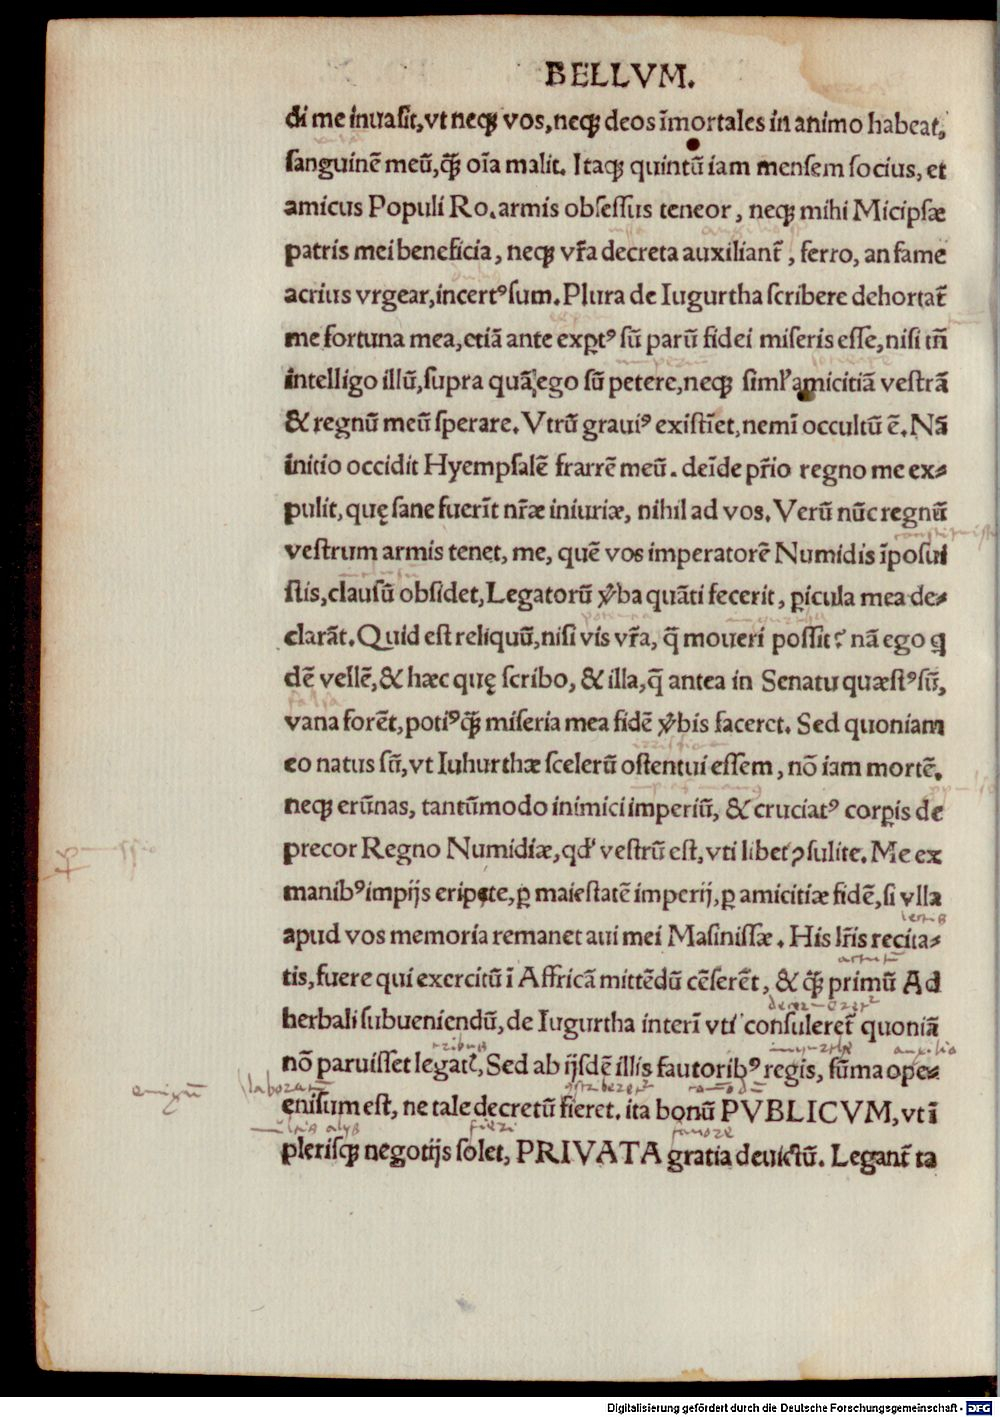 BELLVM.
di me inuasit, vt neqȝ vos, neqȝ deos ĩmortales in animo habeat,
sanguinẽ meũ, q̃ȝ oĩa malit. Itaqȝ quintũ iam mensem socius, et
amicus Populi Ro. armis obsessus teneor, neqȝ mihi Micipsæ
patris mei beneficia, neqȝ vr̃a decreta auxiliant̃, ferro, an fame
acrius vrgear, incertꝰ sum. Plura de Iugurtha scribere dehortat̃
me fortuna mea, etiã ante exꝑtꝰ sũ parũ fidei miseris esse, nisi tñ
intelligo illũ, supra quã ego sũ petere, neqȝ siml' amicitiã vestrã
& regnũ meũ sperare. Vtrũ grauiꝰ existĩet, nemĩ occultũ ẽ. Nã
initio occidit Hyempsalẽ frarrẽ meũ. deĩde pr̃io regno me ex⸗
pulit, quę sane fuerĩt nr̃æ iniuriæ, nihil ad vos. Verũ nũc regnũ
vestrum armis tenet, me, quẽ vos imperatorẽ Numidis ĩposui
stis, clausũ obsidet, Legatorũ v̾ba quãti fecerit, ꝑicula mea de⸗
clarãt. Quid est reliquũ, nisi vis vr̃a, q̃ moueri possit? nã ego q
dẽ vellẽ, & hæc quę scribo, & illa, q̃ antea in Senatu quæstꝰ sũ,
vana forẽt, potiꝰ q̃ȝ miseria mea fidẽ v̾bis faceret. Sed quoniam
eo natus sũ, vt Iuhurthæ scelerũ ostentui essem, nõ iam mortẽ.
neqȝ erũnas, tantũmodo inimici imperiũ, & cruciatꝰ corꝑis de
precor Regno Numidiæ, qd' vestrũ est, vti libet ꝯsulite. Me ex
manibꝰ impijs eripete, ꝑ maiestatẽ imperij, ꝑ amicitiæ fidẽ, si vlla
apud vos memoria remanet aui mei Masinissæ. His lr̃is recita⸗
tis, fuere qui exercitũ ĩ Affricã mittẽdũ cẽserẽt, & q̃ȝ primũ Ad
herbali subueniendũ, de Iugurtha interĩ vti consuleret̃ quoniã
nõ paruisset legat̃, Sed ab ijsdẽ illis fautoribꝰ regis, sũma ope⸗
enisum est, ne tale decretũ fieret. ita bonũ PVBLICVM, vt ĩ
plerisqȝ negotijs solet, PRIVATA gratia deuictũ. Legant̃ ta
Digitalisierung gefördert durch die Deutsche Forschungsgemeinschaft - DFG